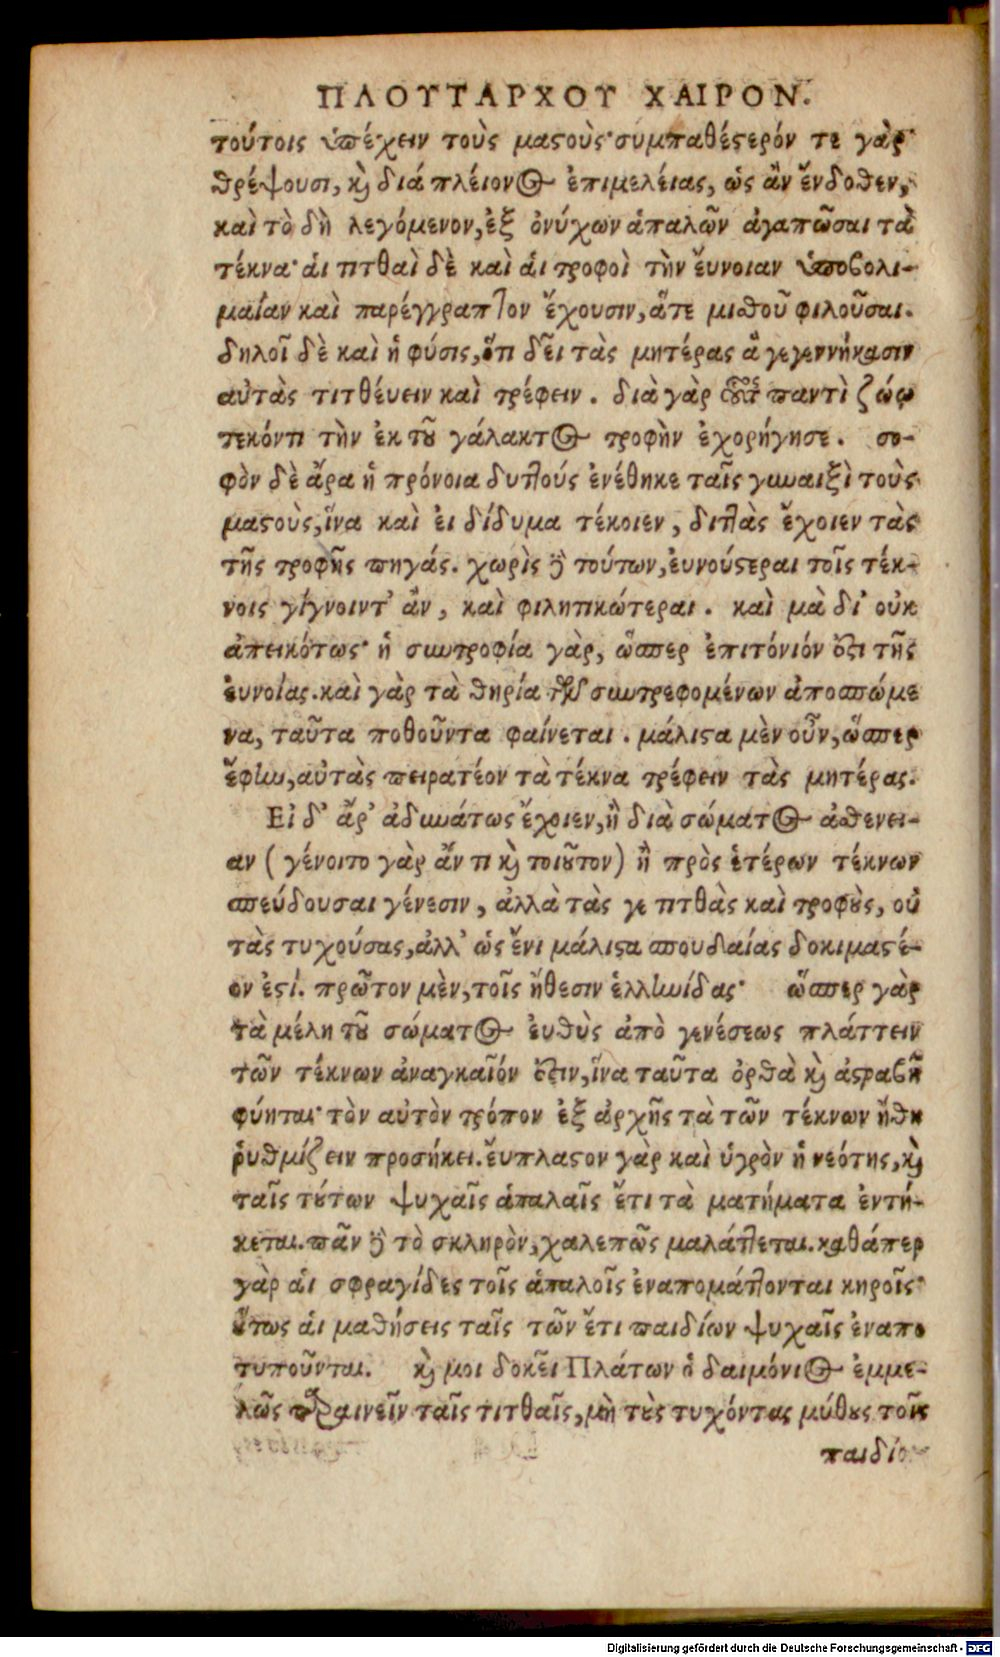 ΠΛΟΥΤΑΡΧΟΥ ΧΑΙΡΟΝ.
τούτοις ὑπέχειν τοὺς μαϛούς· συμπαθέϛερόν τε γὰρ
θρέψουσι, κ̀ διά πλέιονος ἐπιμελέιας, ὡς ἂν ἔνδοθεν,
καὶ τὸ δὴ λεγόμενον, ἐξ ὀνύχων ἁπαλῶν ἀγαπῶσαι τὰ
τέκνα· ἁι τιτθαὶ δὲ καὶ ἁι τροφοὶ τὴν ἔυνοιαν ὑποβολι-
μαίαν καὶ παρέγγραπτον ἔχουσιν, ἅτε μιθοῦ φιλοῦσαι.
δηλοῖ δὲ καὶ ἡ φύσις, ὅτι δεῖ τὰς μητέρας ἃ γεγεννήκασιν
αὐτὰς τιτθέυειν καὶ τρέφειν. διὰ γὰρ τοῦτο παντὶ ζώῳ
τεκόντι τὴν ἐκ τοῦ γάλακτος τροφὴν ἐχορήγησε. σο-
φὸν δὲ ἄρα ἡ πρόνοια διττούς ἐνέθηκε ταῖς γυναιξὶ τοὺς
μαϛοὺς, ἵνα καὶ ἐι δίδυμα τέκοιεν, διττὰς ἔχοιεν τὰς
τῆς τροφῆς πηγάς. χωρὶς δὲ τούτων, ἐυνούϛεραι τοῖς τέκ-
νοις γίγνοιντ' ἂν, καὶ φιλητικώτεραι. καὶ μὰ δι' οὐκ
ἀπεικότως· ἡ συντροφία γὰρ, ὥσπερ ἐπιτόνιόν ἐϛι τῆς
ἐυνοίας. καὶ γὰρ τὰ θηρία τῶν συντρεφομένων ἀποσπώμε
να, ταῦτα ποθοῦντα φαίνεται. μάλιϛα μὲν οὖν, ὥσπερ
ἔφην, αὐτὰς πειρατέον τὰ τέκνα τρέφειν τὰς μητέρας.
Εἰ δ' ἄρ' ἀδυνάτως ἔχοιεν, ἢ διὰ σώματος ἀθενει-
αν (γένοιτο γὰρ ἄν τι κ̀ τοιοῦτον) ἢ πρὸς ἑτέρων τέκνων
σπεύδουσαι γένεσιν, ἀλλὰ τὰς γε τιτθὰς καὶ τροφοὺς, οὐ
τὰς τυχούσας, ἀλλ' ὡς ἔνι μάλιϛα σπουδαίας δοκιμαϛέ-
ον ἐϛί. πρῶτον μὲν, τοῖς ἤθεσιν ἑλληνίδας· ὥσπερ γὰρ
τὰ μέλη τοῦ σώματος ἐυθὺς ἀπὸ γενέσεως πλάττειν
τῶν τέκνων ἀναγκαῖόν ἐϛιν, ἵνα ταῦτα ὀρθὰ κ̀ ἀϛραβῆ
φύηται· τὸν αὐτὸν τρόπον ἐξ ἀρχῆς τὰ τῶν τέκνων ἤθη
ῥυθμίζειν προσήκει. ἔυπλαϛον γὰρ καὶ ὑγρὸν ἡ νεότης, κ̀
ταῖς τούτων ψυχαῖς ἁπαλαῖς ἔτι τὰ ματήματα ἐντή-
κεται. πᾶν δὲ τὸ σκληρὸν, χαλεπῶς μαλάττεται. καθάπερ
γὰρ ἁι σφραγίδες τοῖς ἁπαλοῖς ἐναπομάττονται κηροῖς·
οὕτως ἁι μαθήσεις ταῖς τῶν ἔτι παιδίων ψυχαῖς ἐναπο
τυποῦνται. κ̀ μοι δοκεῖ Πλάτων ὁ δαιμόνιος ἐμμε-
λῶς παραινεῖν ταῖς τιτθαῖς, μὴ τοὺς τυχόντας μύθους τοῖς
παιδίο
Digitalisierung gefördert durch die Deutsche Forschungsgemeinschaft - DFG